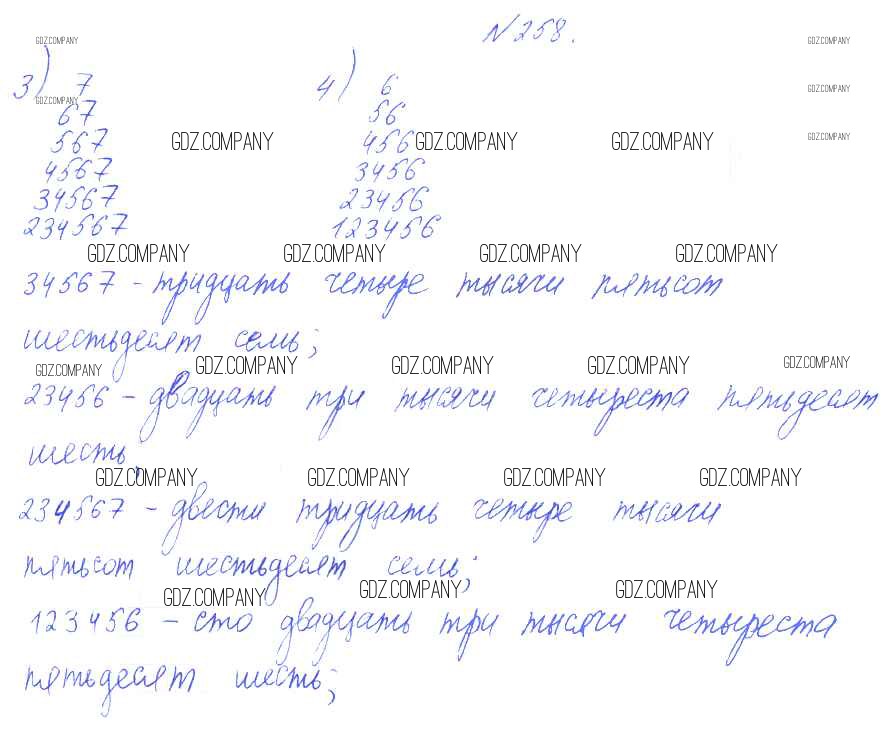 №258.
3) 7 4) 6
67 56
567 456
4567 3456
34567 23456
234567 123456
34567 - тридцать четыре тысячи пятьсот
шестьдесят семь;
23456 - двадцать три тысячи четыреста пятьдесят
шесть;
234567 - двести тридцать четыре тысячи
пятьсот шестьдесят семь;
123456 - сто двадцать три тысячи четыреста
пятьдесят шесть;
GDZ.COMPANY GDZ.COMPANY
GDZ.COMPANY
GDZ.COMPANY
GDZ.COMPANY
GDZ.COMPANY GDZ.COMPANY GDZ.COMPANY
GDZ.COMPANY GDZ.COMPANY GDZ.COMPANY GDZ.COMPANY
GDZ.COMPANY GDZ.COMPANY GDZ.COMPANY GDZ.COMPANY GDZ.COMPANY
GDZ.COMPANY GDZ.COMPANY GDZ.COMPANY GDZ.COMPANY
GDZ.COMPANY GDZ.COMPANY GDZ.COMPANY